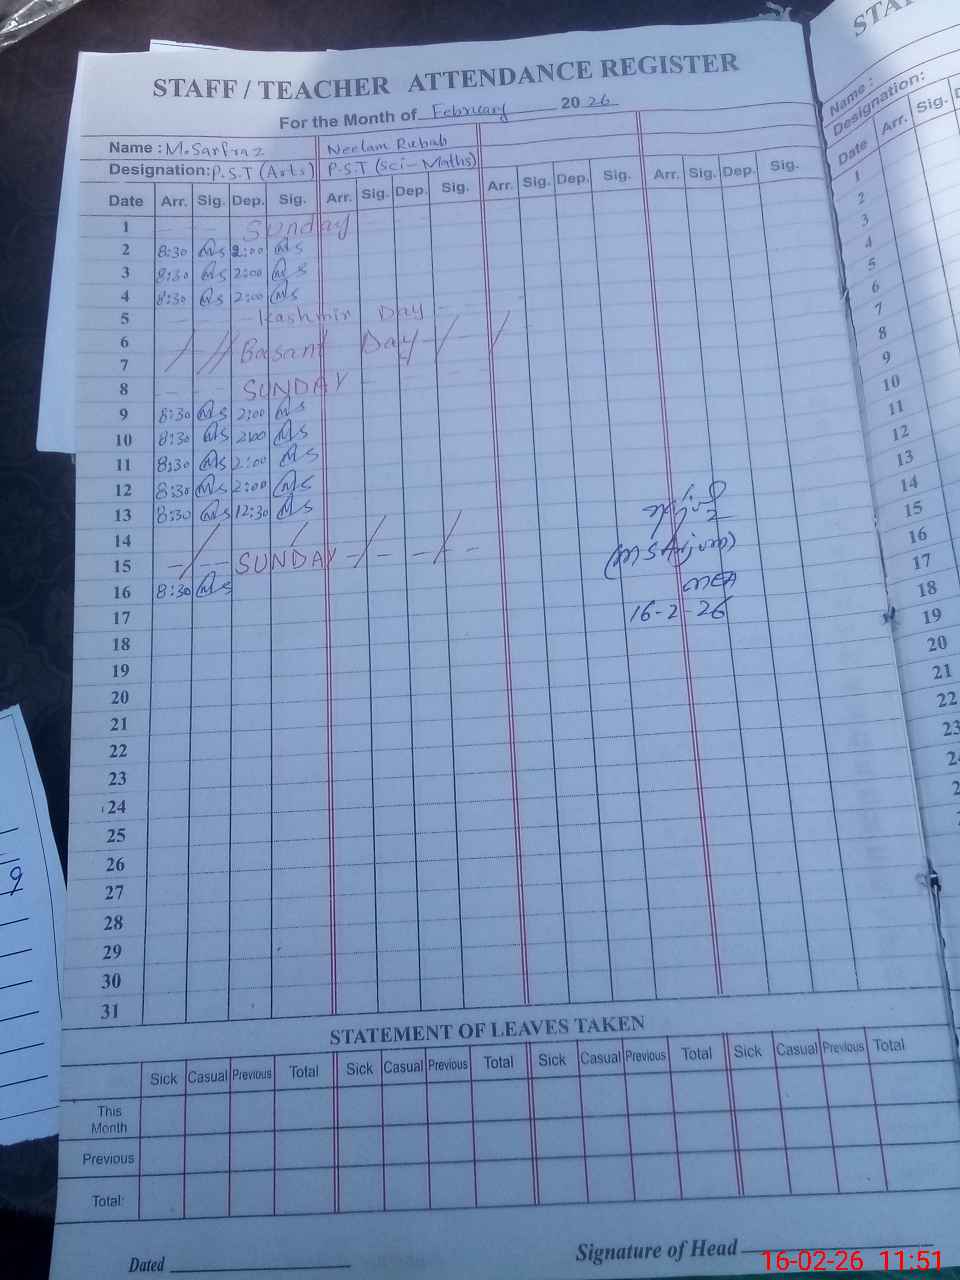 STAFF / TEACHER ATTENDANCE REGISTER
For the Month of February 2026
Name : M.Sarfraz Neelam
Designation: P.S.T (Arts) P.S.T (Sci-Maths)
Date Arr. Sig. Dep. Sig. Arr. Sig. Dep. Sig. Arr. Sig. Dep. Sig. Arr. Sig. Dep. Sig.
1 Sunday
2 8:30 Ms 2:00 Ms
3 8:30 Ms 2:00 Ms
4 8:30 Ms 2:00 Ms
5 Kashmir Day
6 Basant Day
7
8 SUNDAY
9 8:30 Ms 2:00 Ms
10 8:30 Ms 2:00 Ms
11 8:30 Ms 2:00 Ms
12 8:30 Ms 2:00 Ms
13 8:30 Ms 12:30 Ms
14
15 SUNDAY
(M S Anjum)
16 8:30 Ms
MEA
17 16-2-26
18
19
20
21
22
23
24
25
26
27
28
29
30
31
STATEMENT OF LEAVES TAKEN
Sick Casual Previous Total Sick Casual Previous Total Sick Casual Previous Total Sick Casual Previous Total
This Month
Previous
Total:
Dated
Signature of Head
16-02-26 11:51
STA
Name :
Designation:
Date Arr. Sig.
1
2
3
4
5
6
7
8
9
10
11
12
13
14
15
16
17
18
19
20
21
22
23
9